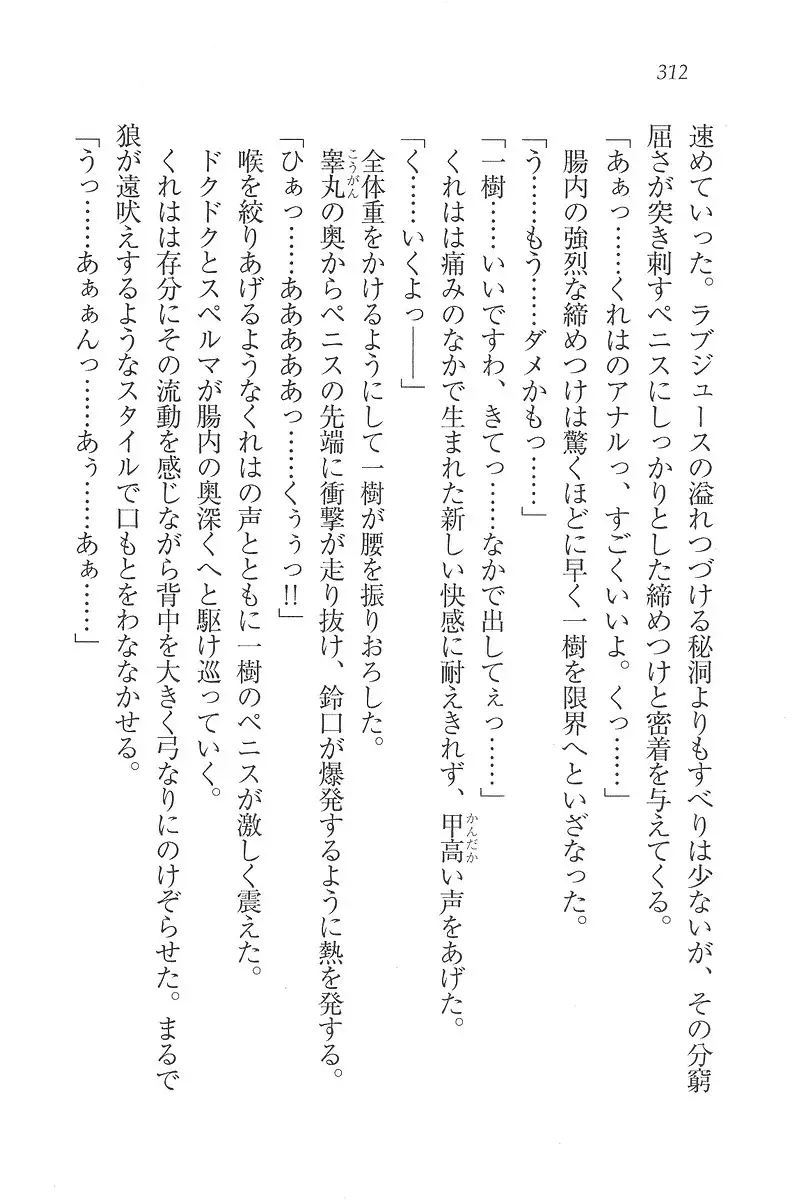 312
速めていった。ラブジュースの溢れつづける秘洞よりもすべりは少ないが、その分窮
屈さが突き刺すペニスにしっかりとした締めつけと密着を与えてくる。
「あぁっ……くれはのアナルっ、すごくいいよ。くっ……」
腸内の強烈な締めつけは驚くほどに早く一樹を限界へといざなった。
「う……もう……ダメかもっ……」
「一樹……いいですわ、きてっ……なかで出してぇっ……」
くれはは痛みのなかで生まれた新しい快感に耐えきれず、甲高い声をあげた。
かんだか
「く……いくよっ――」
全体重をかけるようにして一樹が腰を振りおろした。
睾丸の奥からペニスの先端に衝撃が走り抜け、鈴口が爆発するように熱を発する。
こうがん
「ひぁっ……あああああっ……くぅぅっ!!」
喉を絞りあげるようなくれはの声とともに一樹のペニスが激しく震えた。
ドクドクとスペルマが腸内の奥深くへと駆け巡っていく。
くれはは存分にその流動を感じながら背中を大きく弓なりにのけぞらせた。まるで
狼が遠吠えするようなスタイルで口もとをわななかせる。
「うっ……あぁぁんっ……あぅ……あぁ……」